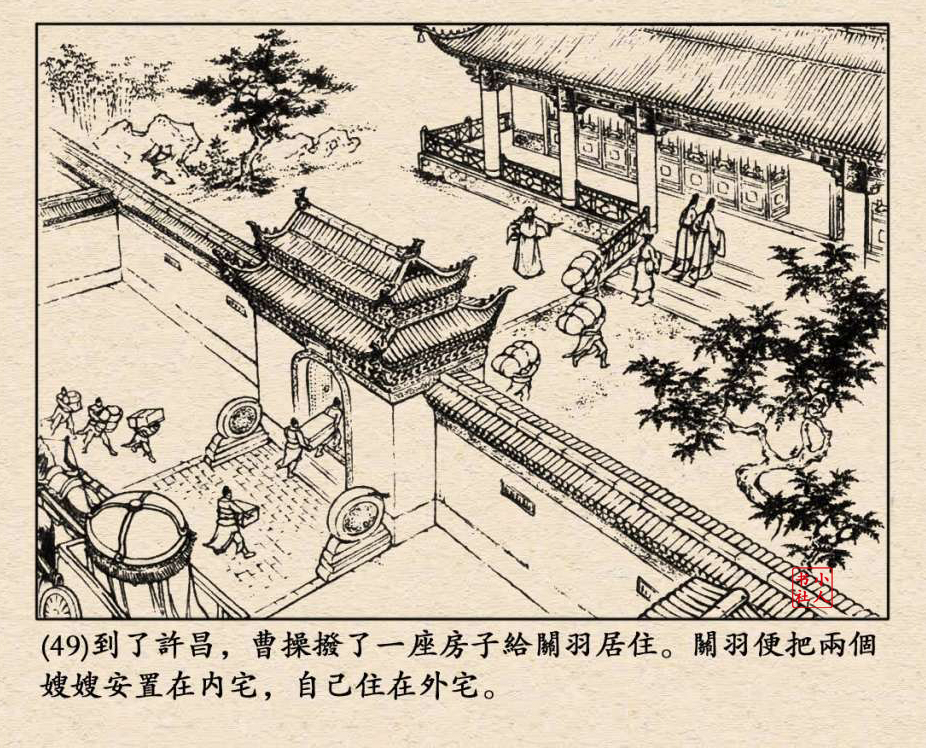 小人
书社
(49)到了許昌，曹操撥了一座房子給關羽居住。關羽便把兩個
嫂嫂安置在内宅，自己住在外宅。